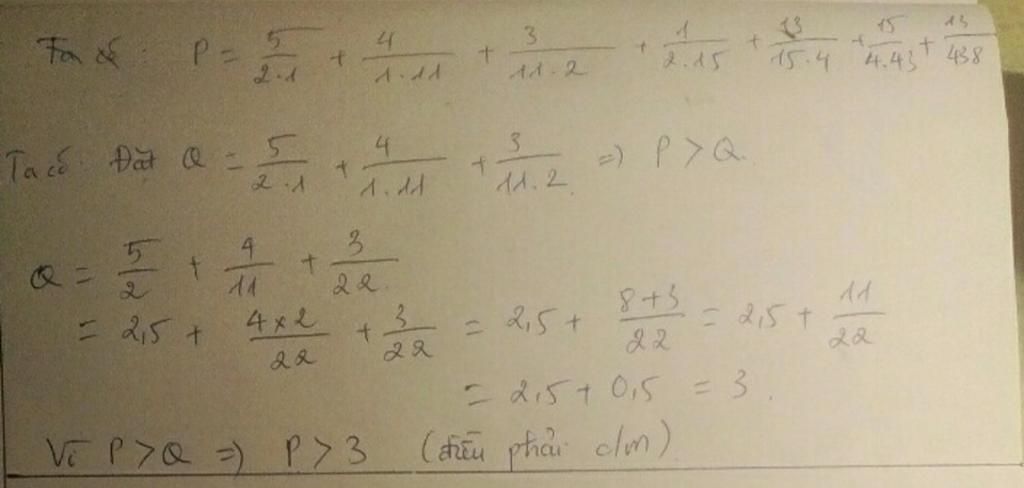 Ta có: P = 5/2.1 + 4/1.11 + 3/11.2 + 1/2.15 + 13/15.4 + 15/4.43 + 13/438
Ta có Đặt Q = 5/2.1 + 4/1.11 + 3/11.2 => P > Q.
Q = 5/2 + 4/11 + 3/22
= 2,5 + 4x2/22 + 3/22 = 2,5 + 8+3/22 = 2,5 + 11/22
= 2,5 + 0,5 = 3.
Vì P > Q => P > 3 (điều phải c/m)